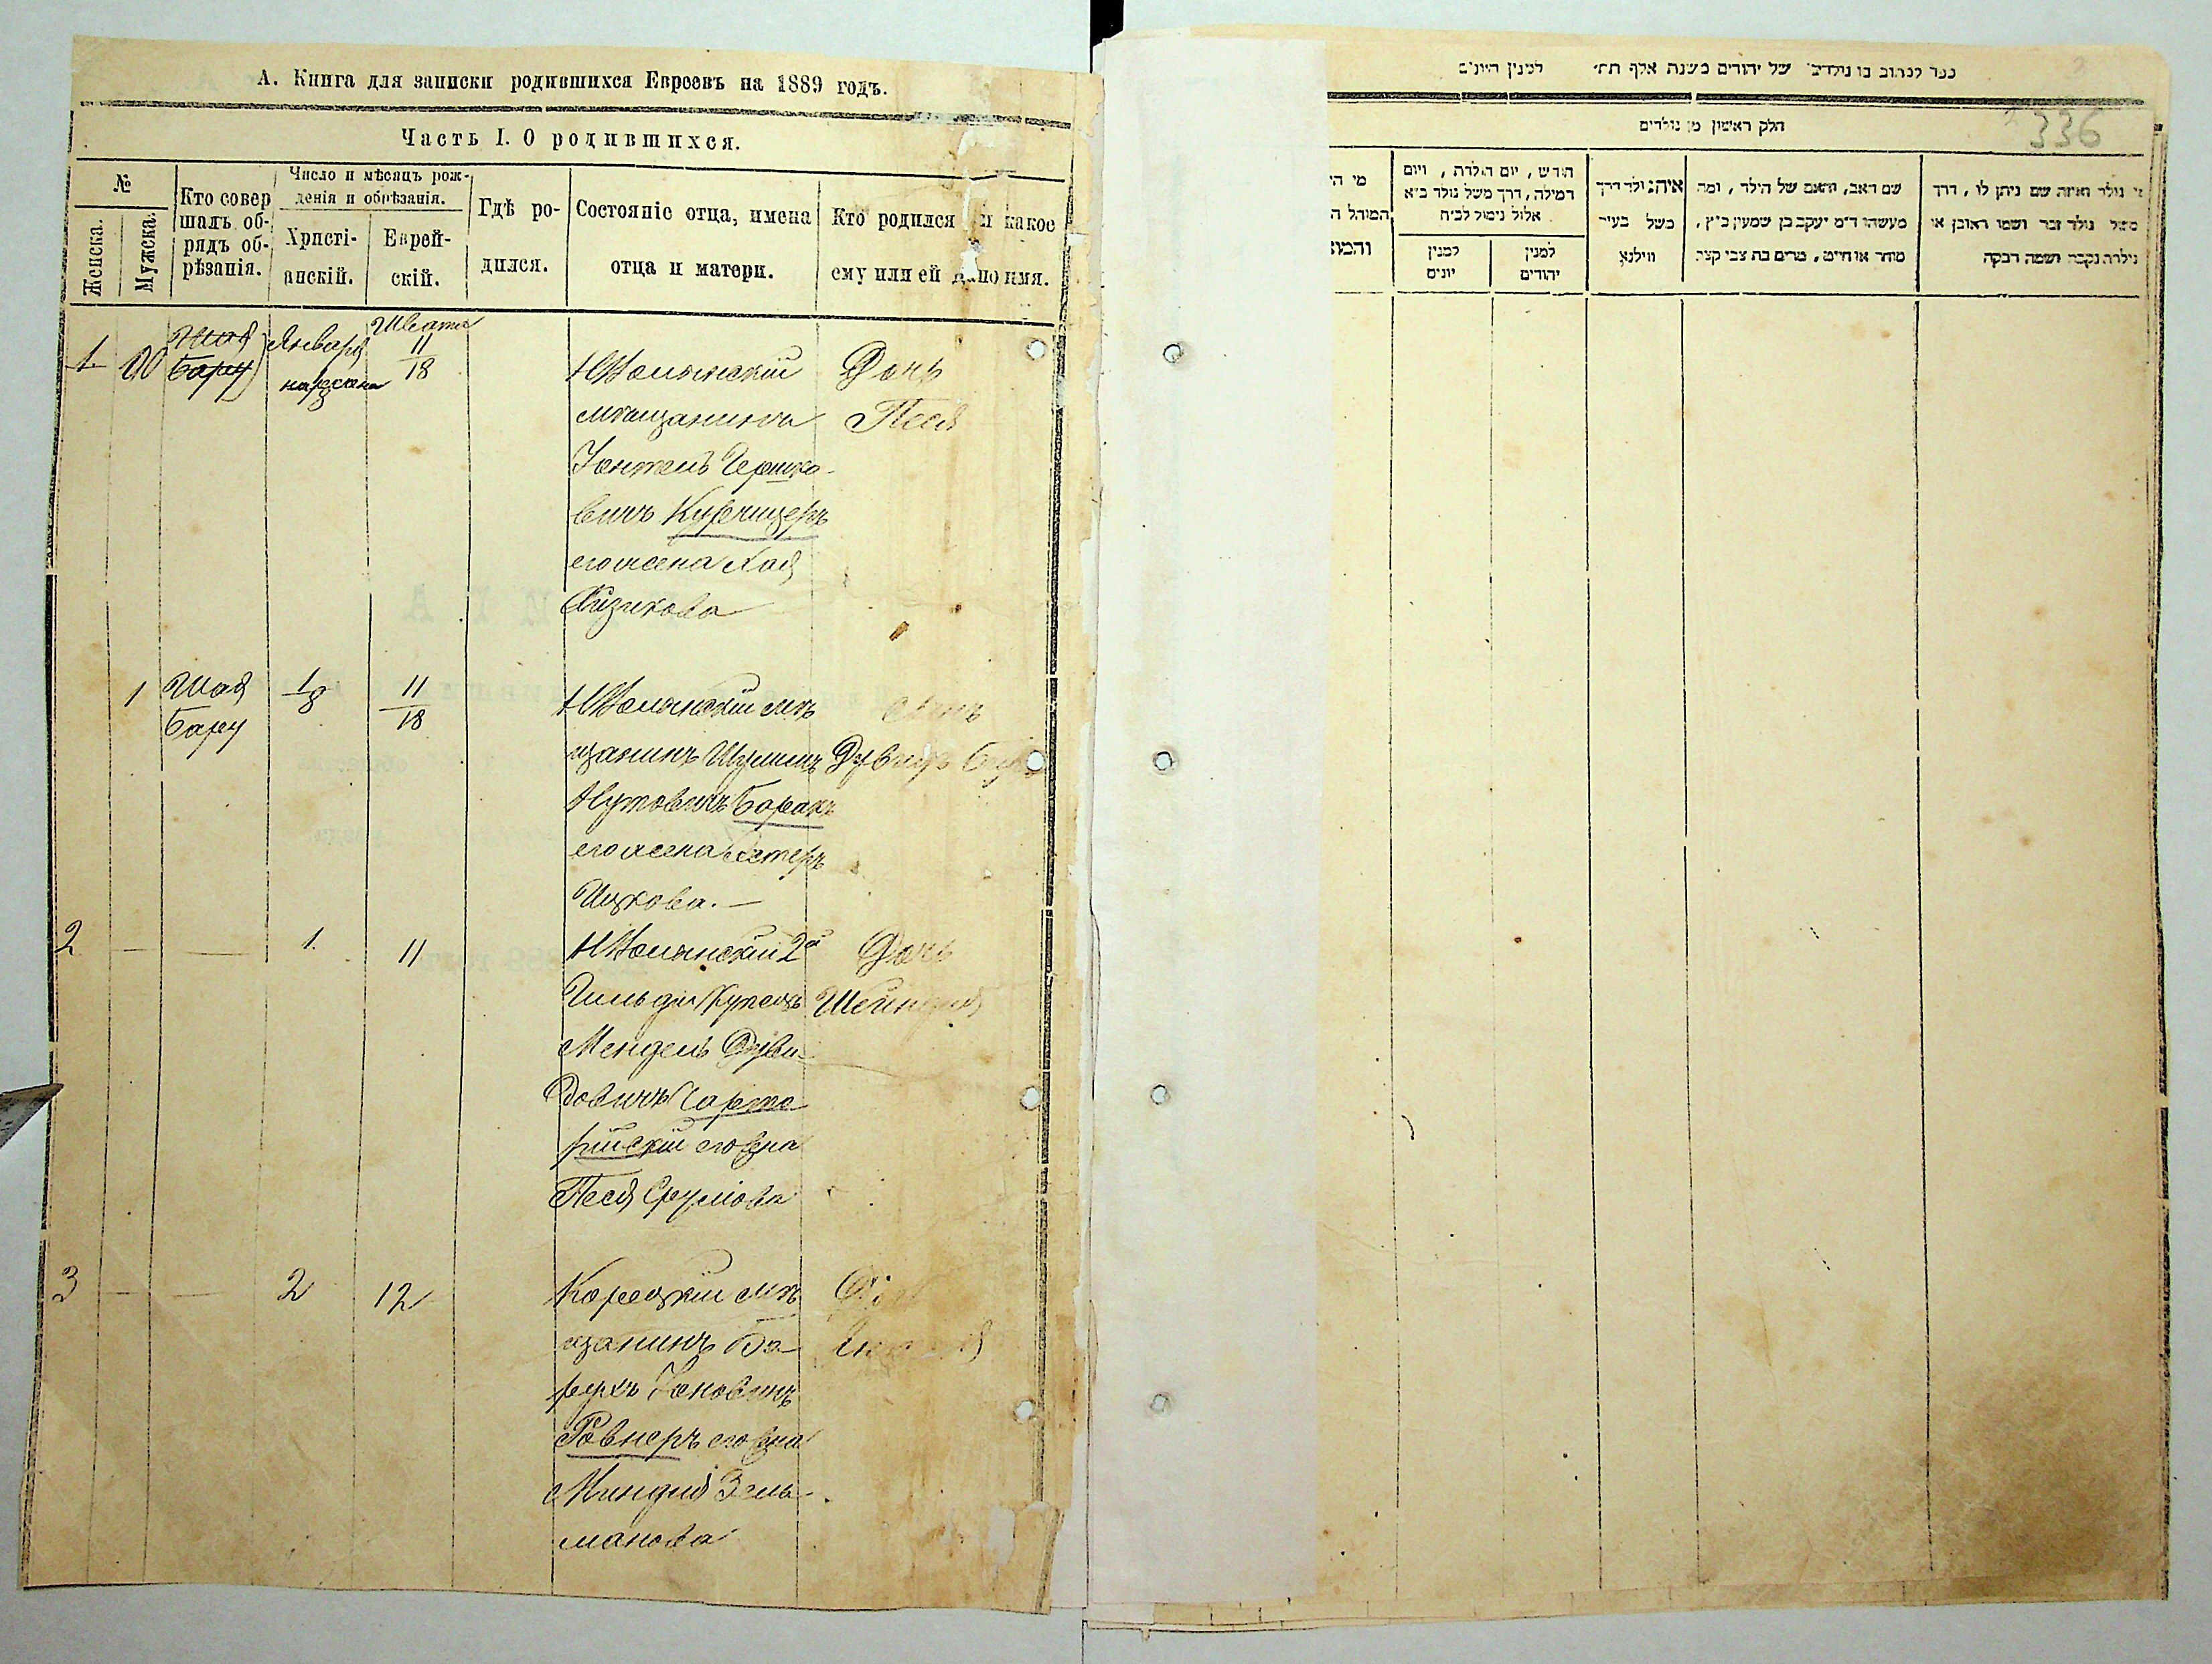 А. Книга для записки родившихся Евреевъ на 1889 годъ.
Часть I. О родившихся.
№
Женска.
Мужска.
Кто совер
шалъ об-
рядъ об-
рѣзанія.
Число и мѣсяцъ рож-
денія и обрѣзанія.
Христі-
анскій.
Еврей-
скій.
Гдѣ ро-
дился.
Состояніе отца, имена
отца и матери.
Кто родился и какое
ему или ей дано имя.
1
Шая
Бару
Января
Швата
11
18
НВолынскій
мѣщанинъ
Іонтель Гершко-
вичъ
его жена Хая
Айзикова
Дочь
Песя
1
Шая
Бару
1
8
11
18
НВолынскій мѣ
щанинъ Шулимъ
Нутовичъ Боракъ
его жена Эстеръ
Ицкова. —
Сынъ
Дувидъ
2
—
—
1.
11
НВолынскій 2й
Гильдіи Купецъ
Мендель Дуви-
довичъ Чарто-
рійскій его жна
Песя Срулiова
Дочь
Шейндля
3
—
—
2
12
Корецкій мѣ
щанинъ Бо-
рухъ Іоновичъ
Ровнеръ его жна
Миндля Зель-
манова
336
ספר לכתוב בו נולדים של יהודים בשנת אלף תת״ למנין היונים
חלק ראשון מן נולדים
מי הי
המוהל ה
והמוצ
חודש, יום הולדת, ויום
המילה, דרך משל נולד כ״א
אלול נימול לכ״ח
למנין
יונים
למנין
יהודים
איה נולד דרך
משל בעיר
ווילנא
שם האב, והאם של הילד, ומה
מעשהו ד״מ יעקב בן שמעון כ״ץ,
סוחר או חייט, מרים בת צבי קצב
מי נולד ואיזה שם ניתן לו, דרך
משל נולד זכר ושמו ראובן או
נולדה נקבה ושמה רבקה